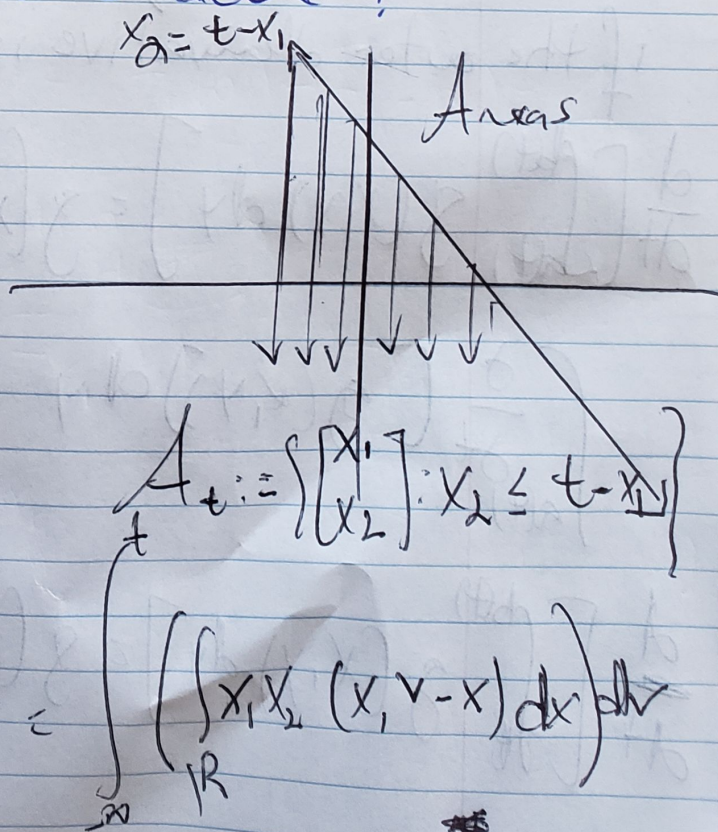 x₂ = t-x₁
A
A_t := {[x₁ x₂] : x₂ ≤ t-x₁}
= ∫_{-∞}^{t} (∫_ℝ x₁x₂ (x, v-x) dx) dv